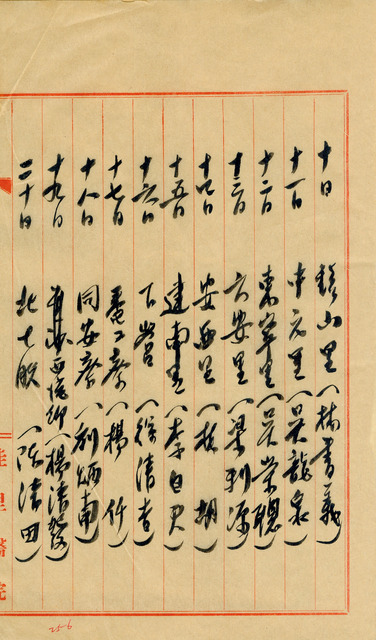 十日 鎮山里（林書義）
十一日 中元里（吳龍泉）
十二日 東寧里（吳榮聰）
十三日 六安里（梁利源）
十四日 安西里（林胡）
十五日 建南里（李自又）
十六日 下營（徐清查）
十七日 蕃工寮（楊仟）
十八日 同安寮（劉炳南）
十九日 西後街（楊清發）
二十日 北七股（陳法田）
佳里醫院
256